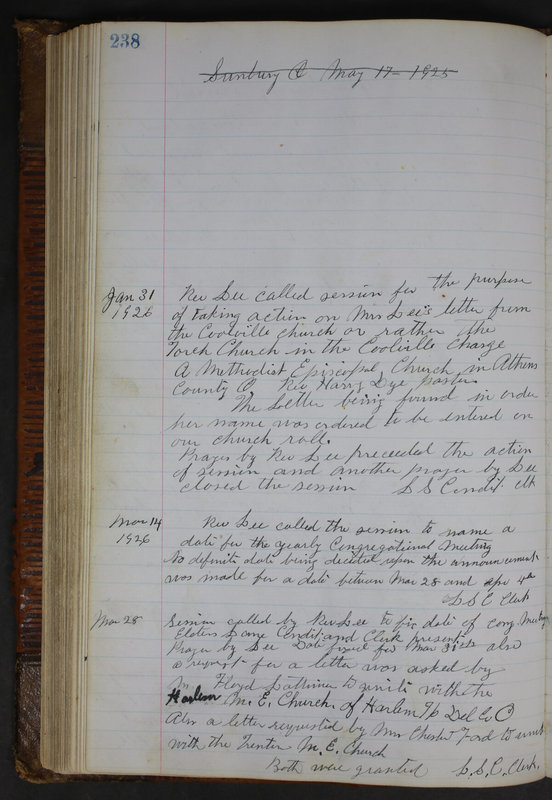 238
Sunbury O May 17 - 1925
Jan 31
1926
Rev Lee called session for the purpose
of taking action on Mrs Lee's letter from
the Coolville church or rather the
Torch Church in the Coolville Charge
A Methodist Episcopal Church in Athens
County O. Rev Harry Dye pastor.
The Letter being found in order
her name was ordered to be entered on
our church roll.
Prayer by Rev Lee preceeded the action
of session and another prayer by Lee
closed the session L S Condit Clk
Mar 14
1926
Rev Lee called the session to name a
date for the yearly Congregational Meeting
No definite date being decided upon the announcement
was made for a date between Mar 28 and Apr 4th
L S C Clerk
Mar 28
Session called by Rev Lee to fix date of cong Meeting
Elders Condit and Clerk present
Prayer by Lee Date fixed for Mar 31st also
a request for a letter was asked by
Floyd Lattimer to unite with the
Harlem M. E. Church of Harlem Tp Del Co O
Also a letter requested by Mrs Chester Ford to unite
with the Trenton M. E. Church
Both were granted L. S. C. Clerk.